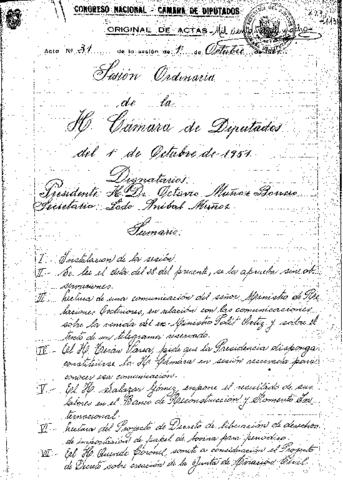 CONGRESO NACIONAL - CAMARA DE DIPUTADOS
ORIGINAL DE ACTAS
Acta Nº 31 de la sesión de 1º Octubre de 1951
Sesión Ordinaria
de la
H. Cámara de Diputados
del 1º de Octubre de 1951.
Dignatarios.
Presidente: H. Dr. Octavio Muñoz Borrero
Secretario: Lcdo Aníbal Muñoz.
Sumario:
I - Instalación de la sesión
II - Se lee el acta del 28 del presente, se la aprueba sin ob-
servaciones.
III - Lectura de una comunicación del señor Ministro de Re-
laciones Exteriores, en relación con las comunicaciones
sobre la venida del ex-Ministro Ortiz y sobre el
texto de un telegrama reservado.
IV - El H. Terán Varea, pide que la Presidencia disponga
constituirse la H. Cámara en sesión reservada para
conocer esa comunicación.
V - El H. Salazar Gómez, expone el resultado de sus
labores en el Banco de Reconstrucción y Fomento In-
ternacional.
VI - Lectura del Proyecto de Decreto de liberación de derechos
de importación de papel de bovina para periódico.
VII - El H. Coronel, somete a consideración el Proyecto
de Decreto sobre creación de la Junta de Aviación Civil